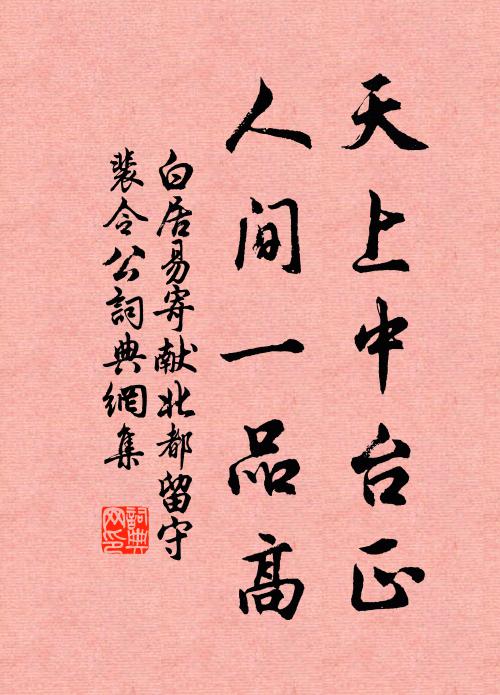 天上中台正
人间一品高
白居易寄献北都留守
裴令公詞典網集
詞典网印